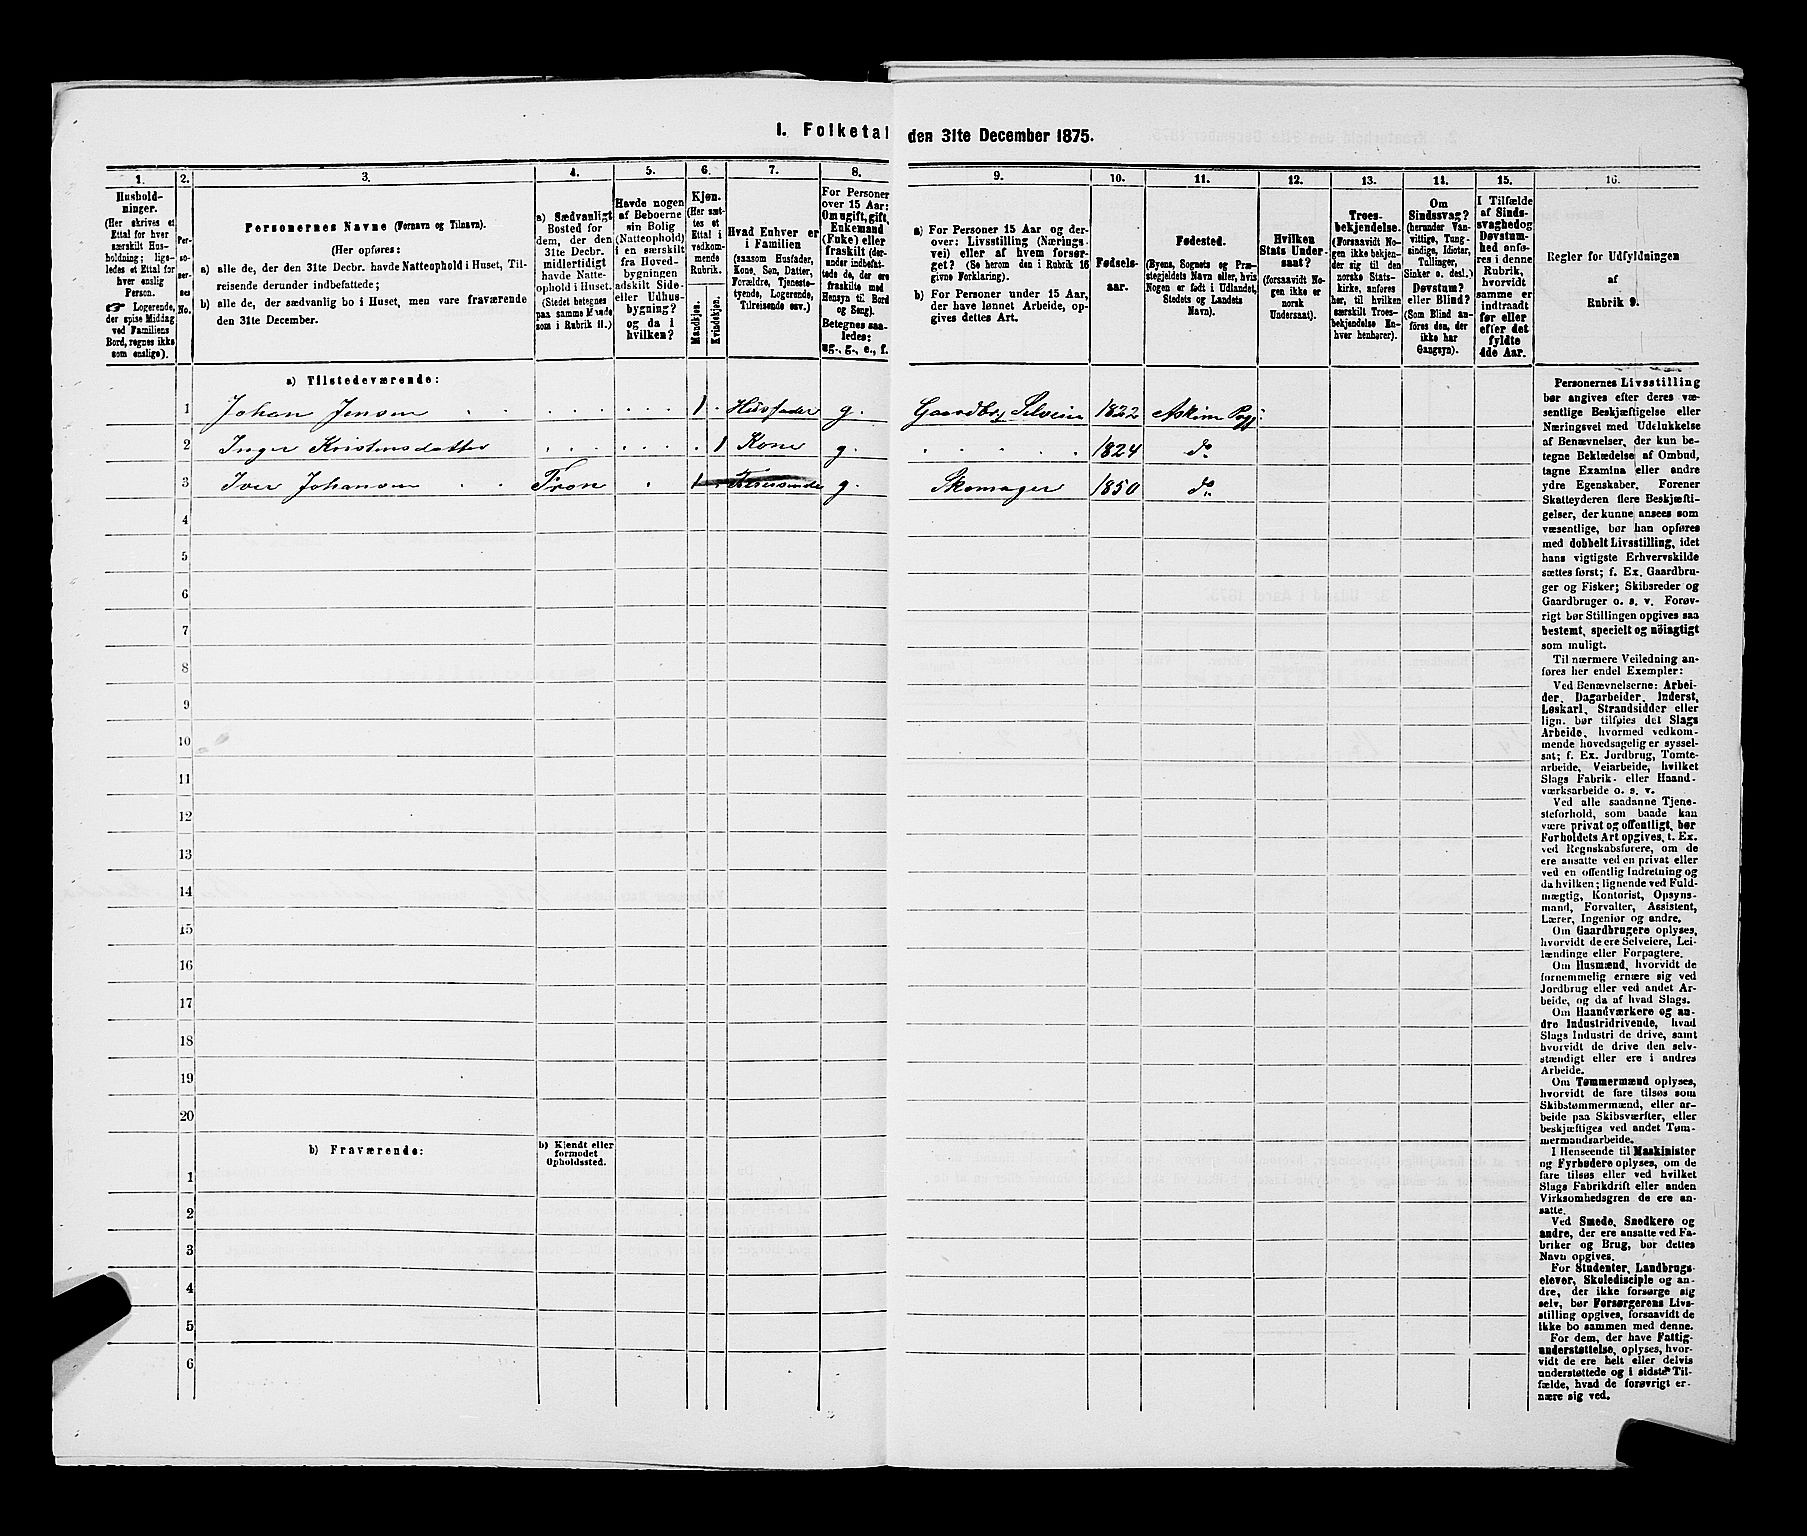 I. Folketæl
den 31te December 1875.
1.
Hushold-
ninger.
(Her skrives et
Ettal for hver
særskilt Hus-
holdning; lige-
ledes et Ettal for
hver enslig
Person.
☞ Logerende,
der spise Middag
ved Familiens
Bord, regnes ikke
som enslige).
2.
Per-
so-
ner-
nes
No.
3.
Personernes Navne (Fornavn og Tilnavn).
(Her opføres:
a) alle de, der den 31te Decbr. havde Natteophold i Huset, Til-
reisende derunder indbefattede;
b) alle de, der sædvanlig bo i Huset, men vare fraværende
den 31te December.
4.
a) Sædvanligt
Bosted for
dem, der den
31te Decbr.
midlertidigt
havde Natte-
ophold i Huset.
(Stedet betegnes
paa samme Maade
som i Rubrik 11.)
5.
Havde nogen
af Beboerne
sin Bolig
(Natteophold)
i en særskilt
fra Hoved-
bygningen
adskilt Side-
eller Udhus-
bygning?
og da i
hvilken?
6.
Kjøn.
(Her sæt-
tes et
Ettal i
vedkom-
mende
Rubrik.
Mandkjøn.
Kvindekjøn.
7.
Hvad Enhver er
i Familien
(saasom Husfader,
Kone, Søn, Datter,
Forældre, Tjeneste-
tyende, Logerende,
Tilreisende osv.)
8.
For Personer
over 15 Aar:
Om ugift, gift,
Enkemand
(Enke) eller
fraskilt (der-
under indbefat-
tede de, der ere
fraskilte med
Hensyn til Bord
og Seng).
Betegnes saa-
ledes:
ug., g., e., f.
9.
a) For Personer 15 Aar og der-
over: Livsstilling (Nærings-
vei) eller af hvem forsør-
get? (Se herom den i Rubrik 16
givne Forklaring).
b) For Personer under 15 Aar,
der have lønnet Arbeide, op-
gives dettes Art.
10.
Fødsels-
aar.
11.
Fødested.
(Byens, Sognets og Præ-
stegjeldets Navn eller, hvis
Nogen er født i Udlandet,
Stedets og Landets
Navn).
12.
Hvilken
Stats Under-
saat?
(forsaavidt No-
gen ikke er
norsk
Undersaat).
13.
Troes-
bekjendelse.
(Forsaavidt No-
gen ikke bekjen-
der sig til den
norske Stats-
kirke, anføres
her, til hvilken
særskilt Troes-
bekjendelse En-
hver henhører).
14.
Om
Sindssvag?
(herunder Van-
vittige, Tung-
sindige, Idioter,
Tullinger,
Sinker o. desl.)
Døvstum?
eller Blind?
(Som Blind an-
føres den, der
ikke har
Gangsyn).
15.
I Tilfælde
af Sinds-
svaghed og
Døvstum-
hed anfø-
res i denne
Rubrik,
hvorvidt
samme er
indtraadt
før eller
efter det
fyldte
4de Aar.
16.
Regler for Udfyldningen
af
Rubrik 9.
a) Tilstedeværende:
1 Johan Jensen 1 Husfader g. Gaardbr. Selveier 1822 Askim Pgj:
2 Inger Kristensdatter 1 Kone g. 1824 do
3 Iver Johansen Tron 1 g. Skomager 1850 do
4
5
6
7
8
9
10
11
12
13
14
15
16
17
18
19
20
b) Fraværende:
b) Kjendt eller
formodet
Opholdssted.
1
2
3
4
5
6
Personernes Livsstilling
bør angives efter deres væ-
sentlige Beskjæftigelse eller
Næringsvei med Udelukkelse
af Benævnelser, der kun be-
tegne Beklædelse af Ombud,
tagne Examina eller andre
ydre Egenskaber. Forener
Skatteyderen flere Beskjæfti-
gelser, der kunne ansees som
væsentlige, bør han opføres
med dobbelt Livsstilling, idet
hans vigtigste Erhvervskilde
sættes først; f. Ex. Gaardbru-
ger og Fisker; Skibsreder og
Gaardbruger o. s. v. Forøv-
rigt bør Stillingen opgives saa
bestemt, specielt og nöiagtigt
som muligt.
Til nærmere Veiledning an-
føres her endel Exempler:
Ved Benævnelserne: Arbei-
der, Dagarbeider, Inderst,
Løskarl, Strandsidder eller
lign. bør tilføies det Slags
Arbeide, hvormed vedkom-
mende hovedsagelig er syssel-
sat; f. Ex. Jordbrug, Tomte-
arbeide, Veiarbeide, hvilket
Slags Fabrik- eller Haand-
værksarbeide o. s. v.
Ved alle saadanne Tjene-
steforhold, som baade kan
være privat og offentligt, bør
Forholdets Art opgives, t. Ex.
ved Regnskabsførere, om de
ere ansatte ved en privat eller
ved en offentlig Indretning og
da hvilken; lignende ved Fuld-
mægtig, Kontorist, Opsyns-
mand, Forvalter, Assistent,
Lærer, Ingeniør og andre.
Om Gaardbrugere oplyses,
hvorvidt de ere Selveiere, Lei-
lændinge eller Forpagtere.
Om Husmænd, hvorvidt de
fornemmelig ernære sig ved
Jordbrug eller ved andet Ar-
beide, og da af hvad Slags.
Om Haandværkere og an-
dre Industridrivende, hvad
Slags Industri de drive, samt
hvorvidt de drive den selv-
stændigt eller ere i andres
Arbeide.
Om Tømmermænd oplyses,
hvorvidt de fare tilsøs som
Skibstømmermænd, eller ar-
beide paa Skibsværfter, eller
beskjæftiges ved andet Tøm-
mermandsarbeide.
I Henseende til Maskinister
og Fyrbødere oplyses, om de
fare tilsøs eller ved hvilket
Slags Fabrikdrift eller anden
Virksomhedsgren de ere an-
satte.
Ved Smede, Snedkere og
andre, der ere ansatte ved Fa-
briker og Brug, bør dettes
Navn opgives.
For Studenter, Landbrugs-
elever, Skoledisciple og an-
dre, der ikke forsørge sig
selv, bør Forsørgerens Livs-
stilling opgives, forsaavidt de
ikke bo sammen med denne.
For dem, der have Fattig-
understøttelse, oplyses, hvor-
vidt de ere helt eller delvis
understøttede og i sidste Til-
fælde, hvad de forøvrigt er-
nære sig ved.